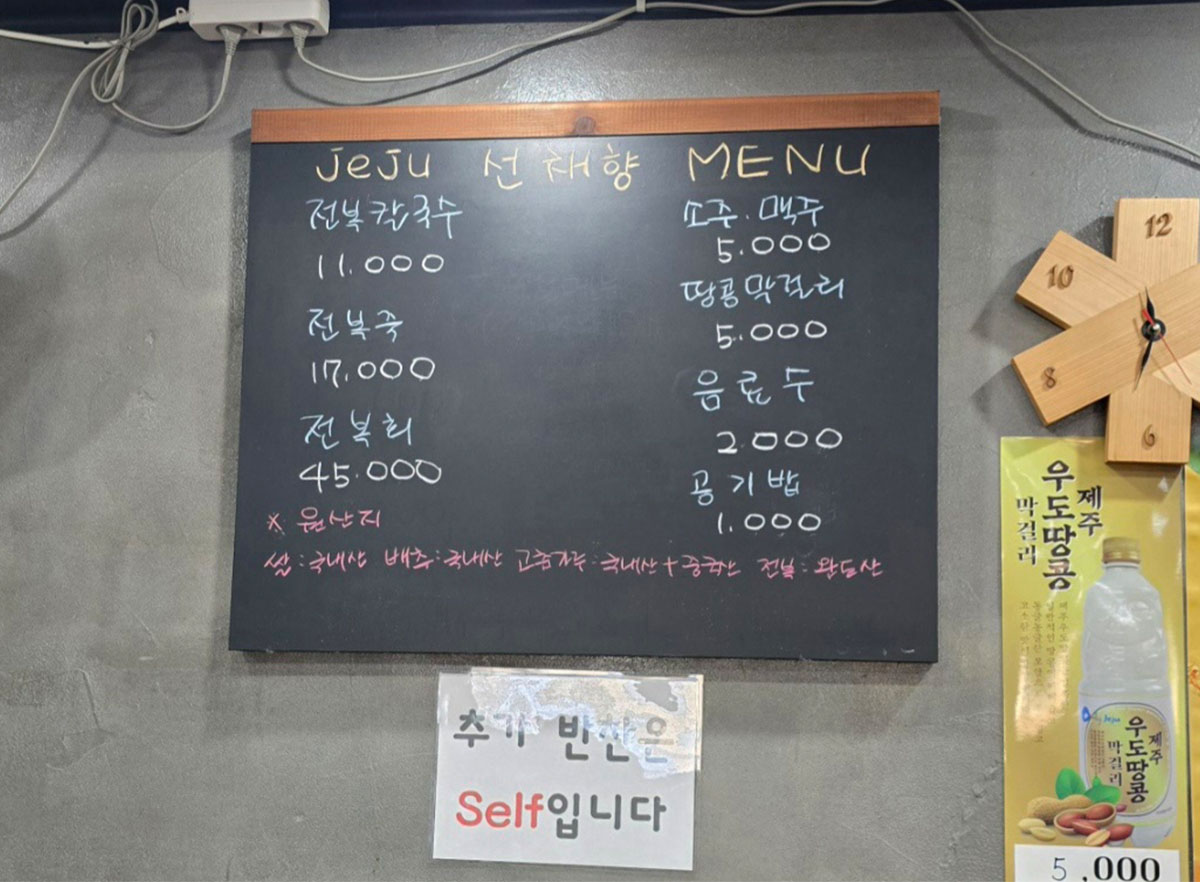 JeJu 선채향 MENU
전복칼국수
11.000
전복죽
17.000
전복회
45.000
소주. 맥주
5.000
땅콩막걸리
5.000
음료수
2.000
공기밥
1.000
※ 원산지
쌀:국내산 배추:국내산 고춧가루:국내산+중국산 전복:완도산
추가 반찬은
Self입니다
12
10
8
6
제주
우도땅콩
막걸리
제주
우도땅콩
막걸리
5,000